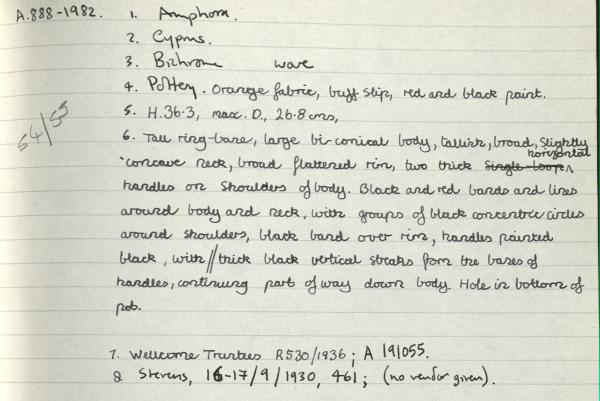 A.888-1982. 1. Amphora.
2. Cyprus.
3. Bichrome wave
4. Pottery. Orange fabric, buff slip, red and black paint.
5. H.36.3, max. D, 26.8 cms,
54/55
6. Tall ring-base, large bi-conical body, tallish, broad, slightly
horizontal
concave neck, broad flattened rim, two thick single-loop
handles on shoulders of body. Black and red bands and lines
around body and neck, with groups of black concentric circles
around shoulders, black band over rim, handles painted
black, with // thick black vertical streaks from the bases of
handles, continuing part of way down body. Hole in bottom of
pot.
7. Wellcome Trustees R530/1936; A 191055.
8 Stevens, 16-17/9/1930, 461; (no vendor given).